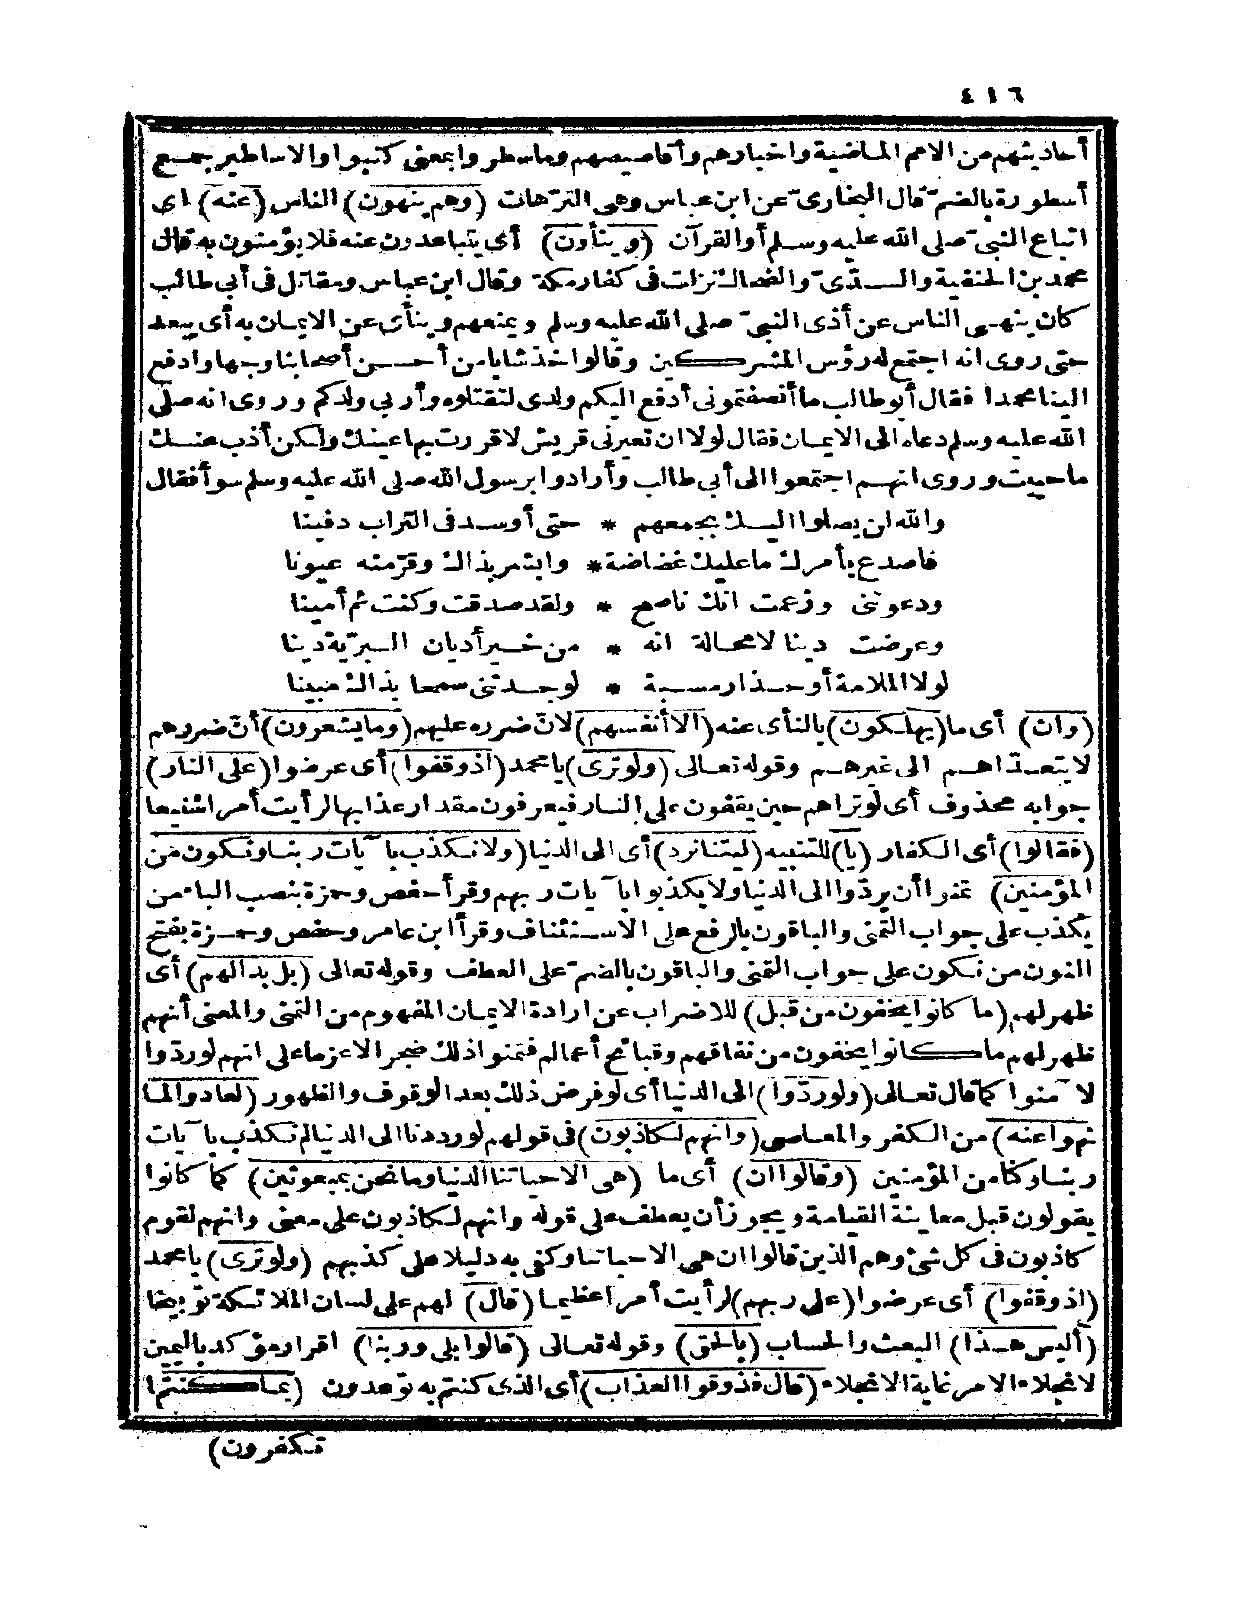 ٤١٦
أحاديثهم من الامم الماضية واخبارهم وأقاصيصهم وماسطروا بمعنى كتبوا والاساطير جمع
أسطورة بالضم قال البخارى عن ابن عباس وهى الترّهات (وهم ينهون) الناس (عنه) اى
اتباع النبىّ صلى الله عليه وسلم أو القرآن (وينأون) أى يتباعدون عنه فلا يؤمنون به قال
محمد بن الحنفية والسدّىّ والضحاك نزلت فى كفار مكة وقال ابن عباس ومقاتل فى أبى طالب
كان ينهى الناس عن أذى النبىّ صلى الله عليه وسلم ويمنعهم وينأى عن الايمان به أى يبعد
حتى روى انه اجتمع له رؤس المشركين وقالوا خذ شابا من أحسن أصحابنا وجها وادفع
الينا محمدا فقال أبو طالب ما أنصفتمونى أدفع اليكم ولدى لتقتلوه وأربى ولدكم وروى انه صلى
الله عليه وسلم دعاه الى الايمان فقال لولا ان تعيرنى قريش لاقررت بها عينك ولكن أذب عنك
ما حييت وروى انهم اجتمعوا الى أبى طالب وأرادوا برسول الله صلى الله عليه وسلم سوأ فقال
والله لن يصلوا اليك بجمعهم * حتى أوسد فى التراب دفينا
فاصدع بأمرك ما عليك غضاضة * وابشر بذاك وقرّ منه عيونا
ودعوتنى وزعمت انك ناصح * ولقد صدقت وكنت ثم أمينا
وعرضت دينا لا محالة انه * من خير أديان البرية دينا
لولا الملامة أو حذار مسبة * لوجدتنى سمحا بذاك مبينا
(وان) أى ما (يهلكون) بالنأى عنه (الا أنفسهم) لانّ ضرره عليهم (وما يشعرون) أنّ ضررهم
لا يتعدّاهم الى غيرهم وقوله تعالى (ولوترى) يا محمد (اذ وقفوا) أى عرضوا (على النار)
جوابه محذوف أى لو تراهم حين يقفون على النار فيعرفون مقدار عذابها لرأيت أمرا شنيعا
(فقالوا) أى الكفار (يا) للتنبيه (ليتنا نرد) أى الى الدنيا (ولا نكذب بآيات ربنا ونكون من
المؤمنين) تمنوا أن يردّوا الى الدنيا ولا يكذبوا بآيات ربهم وقرأ حفص وحمزة بنصب الباء من
يكذب على جواب التمنى والباقون بالرفع على الاستئناف وقرأ ابن عامر وحفص وحمزة بفتح
النون من نكون على جواب التمنى والباقون بالضم على العطف وقوله تعالى (بل بدالهم) أى
ظهر لهم (ما كانوا يخفون من قبل) للاضراب عن ارادة الايمان المفهوم من التمنى والمعنى أنهم
ظهر لهم ما كانوا يخفون من نفاقهم وقبائح أعمالهم فتمنوا ذلك ضجرا لا عزما على انهم لو ردّوا
لآمنوا كما قال تعالى (ولو ردّوا) الى الدنيا أى لو فرض ذلك بعد الوقوف والظهور (لعادوا لما
نهوا عنه) من الكفر والمعاصى (وانهم لكاذبون) فى قولهم لو رددنا الى الدنيا لم نكذب بآيات
ربنا وكنا من المؤمنين (وقالوا ان) أى ما (هى الا حياتنا الدنيا وما نحن بمبعوثين) كما كانوا
يقولون قبل معاينة القيامة ويجوز أن يعطف على قوله وانهم لكاذبون على معنى وانهم لقوم
كاذبون فى كل شئ وهم الذين قالوا ان هى الا حياتنا وكفى به دليلا على كذبهم (ولوترى) يا محمد
(اذ وقفوا) أى عرضوا (على ربهم) لرأيت أمرا عظيما (قال) لهم على لسان الملائكة توبيخا
(أليس هذا) البعث والحساب (بالحق) وقوله تعالى (قالوا بلى وربنا) اقرار مؤكد باليمين
لانجلاء الامر غاية الانجلاء (قال فذوقوا العذاب) أى الذى كنتم به توعدون (بما كنتم
تكفرون)